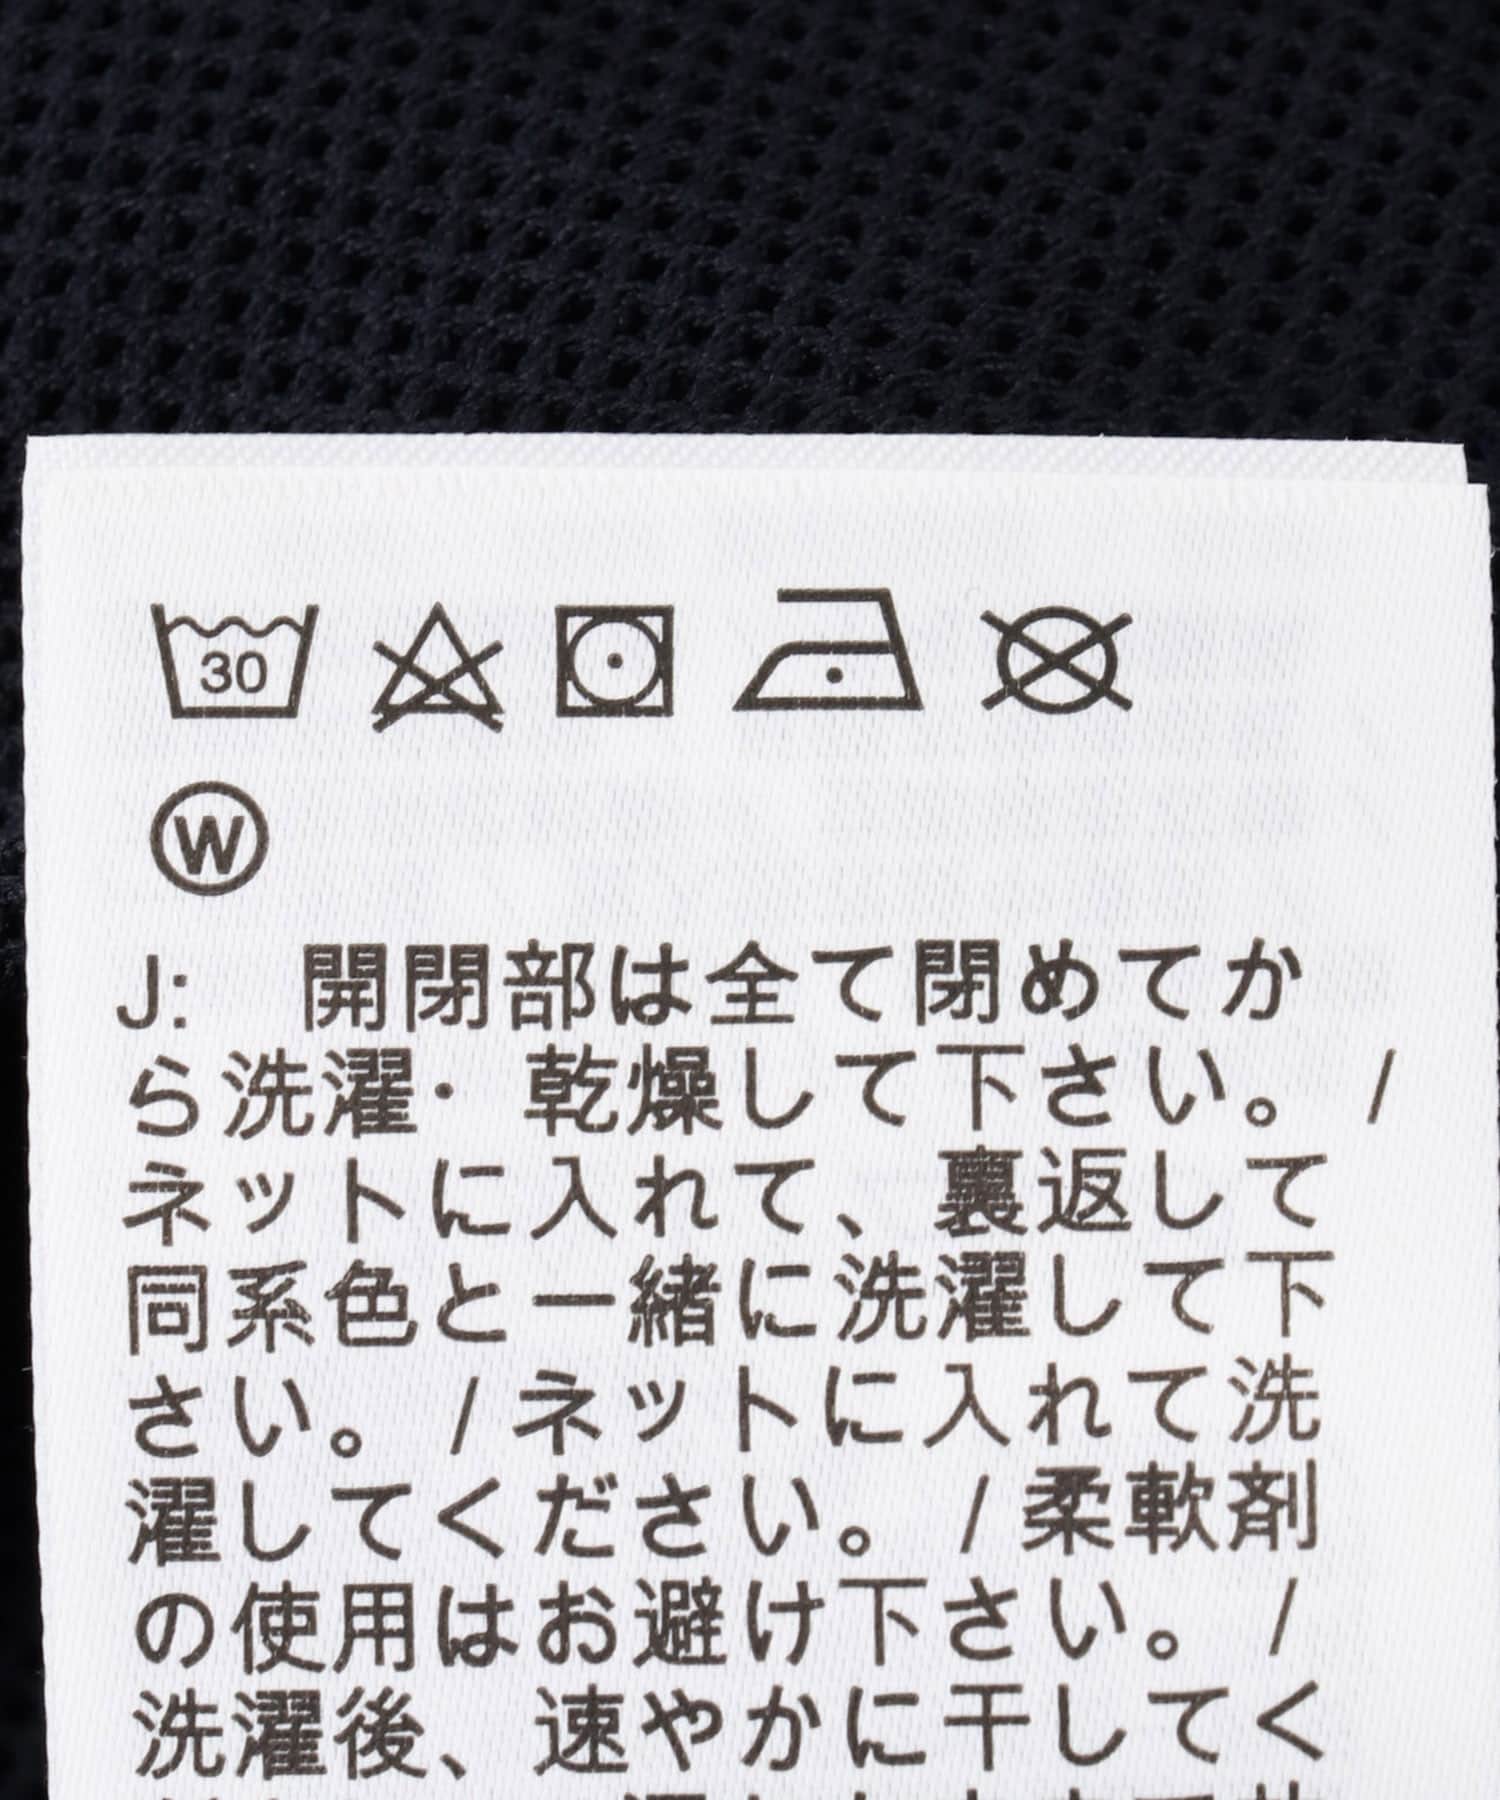 30
W
J: 開閉部は全て閉めてか
ら洗濯・乾燥して下さい。 /
ネットに入れて、裏返して
同系色と一緒に洗濯して下
さい。 / ネットに入れて洗
濯してください。 / 柔軟剤
の使用はお避け下さい。 /
洗濯後、速やかに干してく